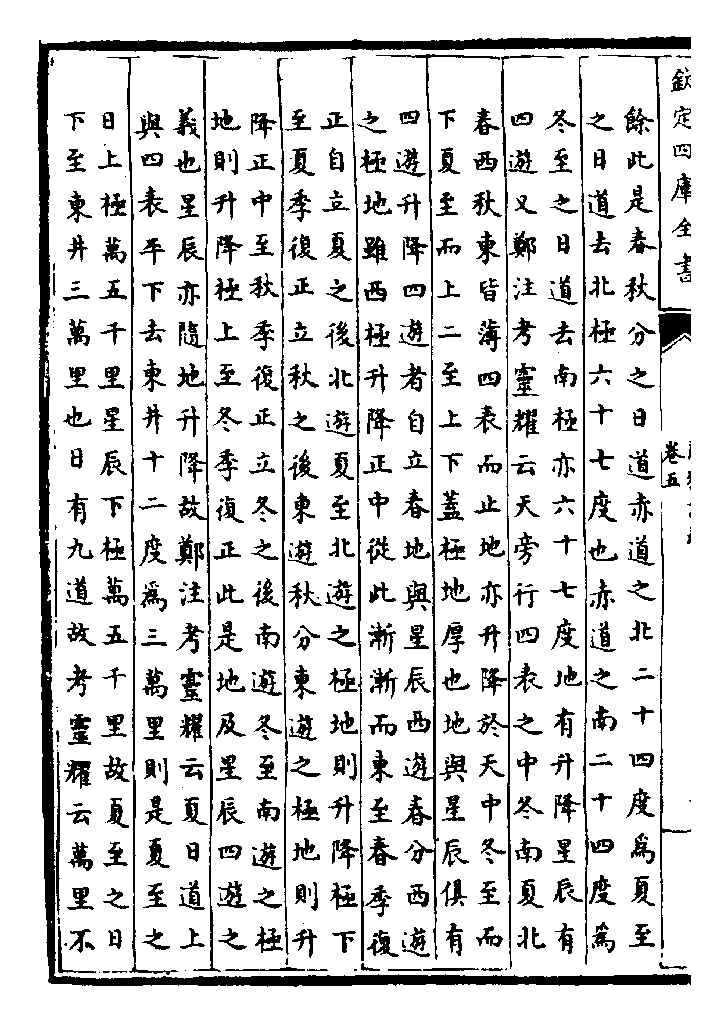 欽定四庫全書
卷五
餘此是春秋分之日道赤道之北二十四度為夏至
之日道去北極六十七度也赤道之南二十四度為
冬至之日道去南極亦六十七度地有升降星辰有
四遊又鄭注考靈耀云天旁行四表之中冬南夏北
春西秋東皆薄四表而止地亦升降於天中冬至而
下夏至而上二至上下蓋極地厚也地與星辰俱有
四遊升降四遊者自立春地與星辰西遊春分西遊
之極地雖西極升降正中從此漸漸而東至春季復
正自立夏之後北遊夏至北遊之極地則升降極下
至夏季復正立秋之後東遊秋分東遊之極地則升
降正中至秋季復正立冬之後南遊冬至南遊之極
地則升降極上至冬季復正此是地及星辰四遊之
義也星辰亦隨地升降故鄭注考靈耀云夏日道上
與四表平下去東井十二度為三萬里則是夏至之
日上極萬五千里星辰下極萬五千里故夏至之日
下至東井三萬里也日有九道故考靈耀云萬里不